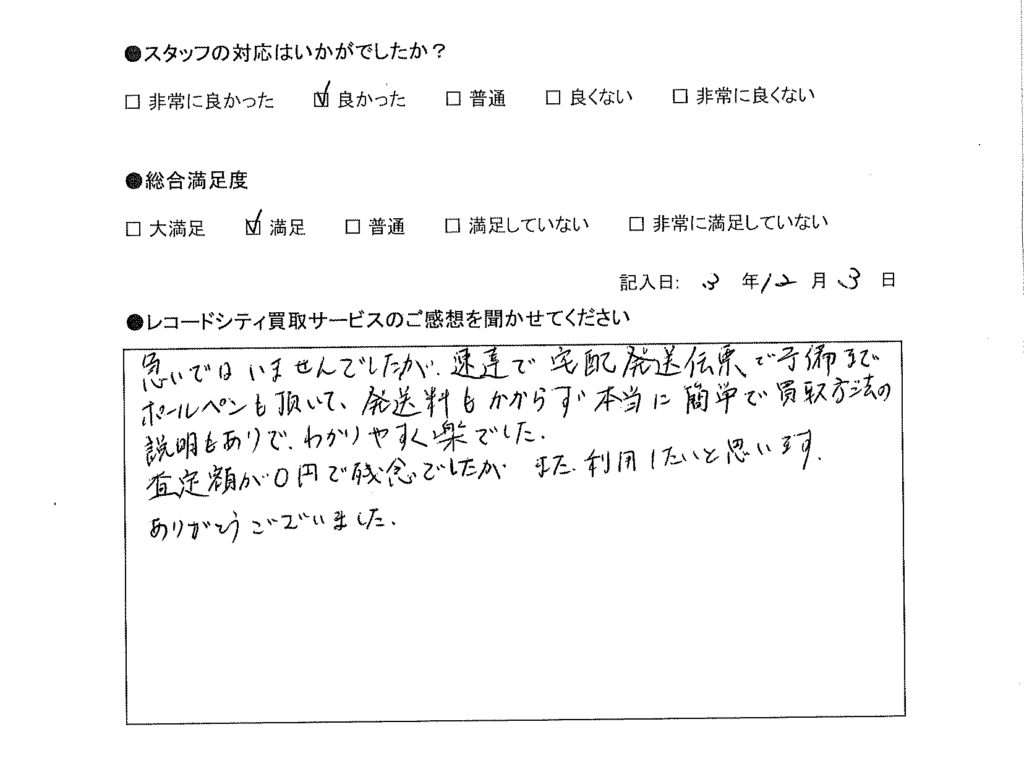 ●スタッフの対応はいかがでしたか?
□ 非常に良かった ☑ 良かった □ 普通 □ 良くない □ 非常に良くない
●総合満足度
□ 大満足 ☑ 満足 □ 普通 □ 満足していない □ 非常に満足していない
記入日: 3 年 12 月 3 日
●レコードシティ買取サービスのご感想を聞かせてください
急いではいませんでしたが、速達で宅配発送伝票、で予備まで
ボールペンも頂いて、発送料もかからず本当に簡単で買取方法の
説明もありで、わかりやすく楽でした。
査定額が0円で残念でしたが また利用したいと思います。
ありがとうございました。